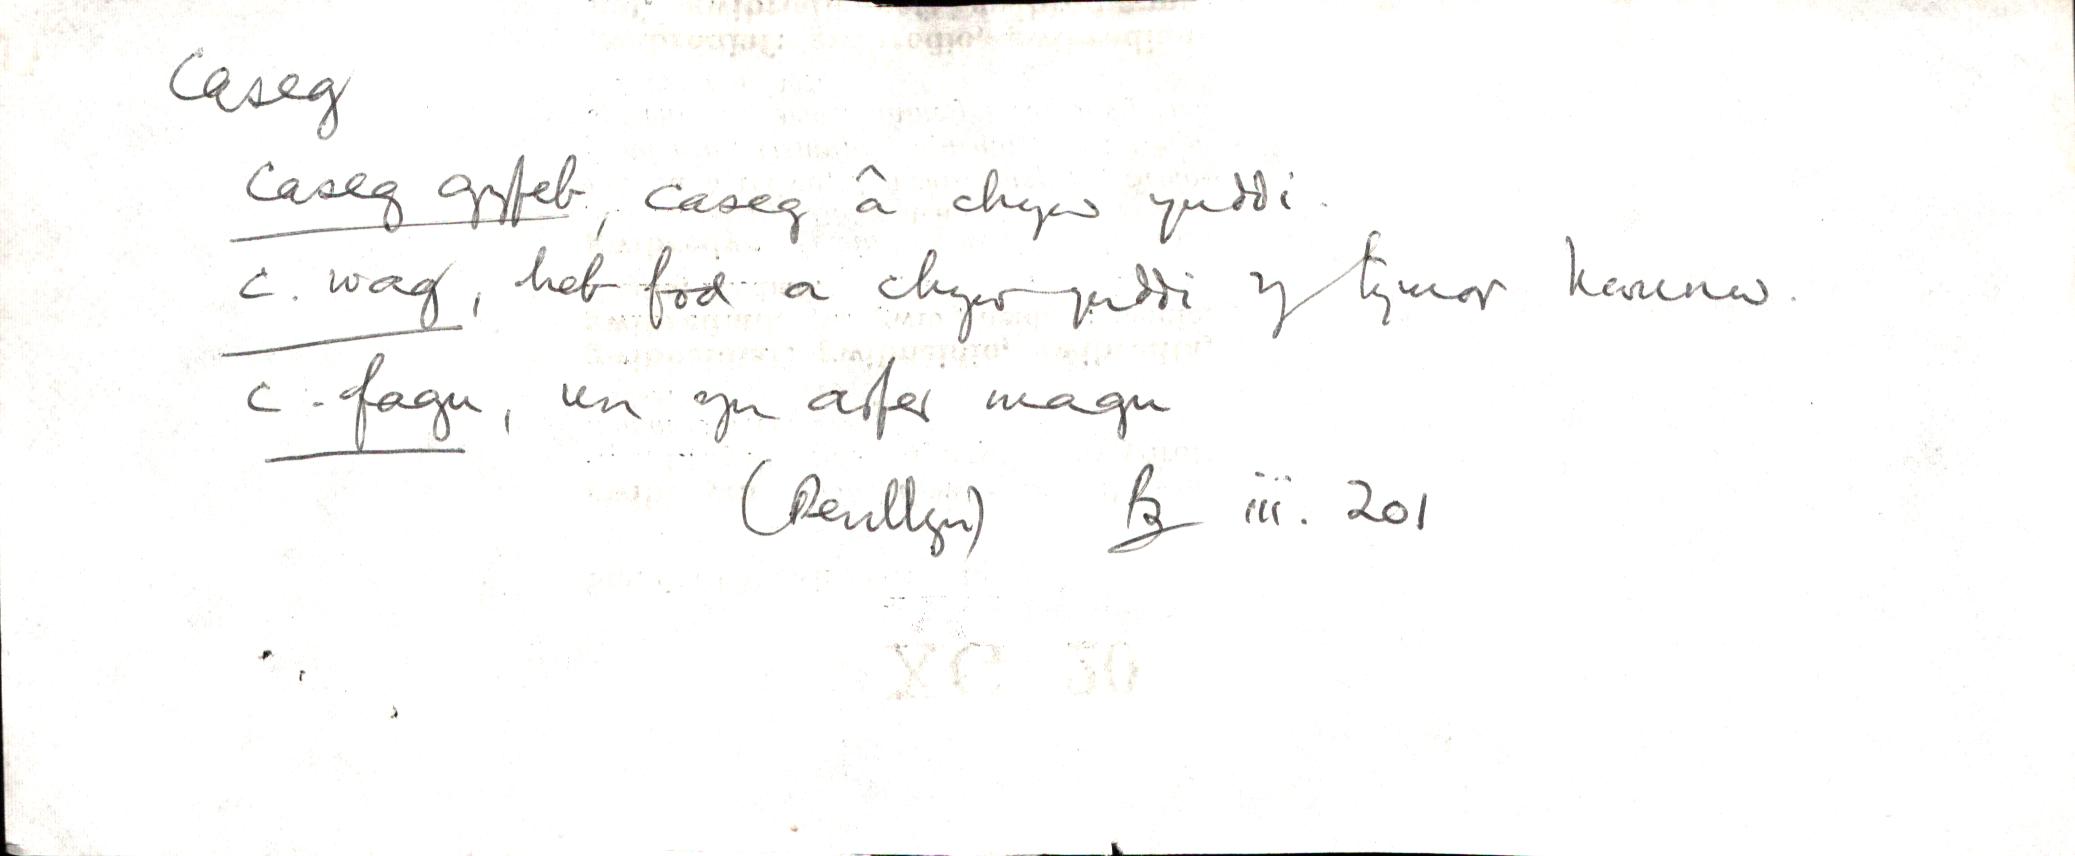 Caseg
caseg gyfeb, caseg â chyw ynddi.
c. wag, heb fod a chyw ynddi y tymor hwnnw.
c. fagu, un yn arfer magu
(Penllyn) B iii. 201